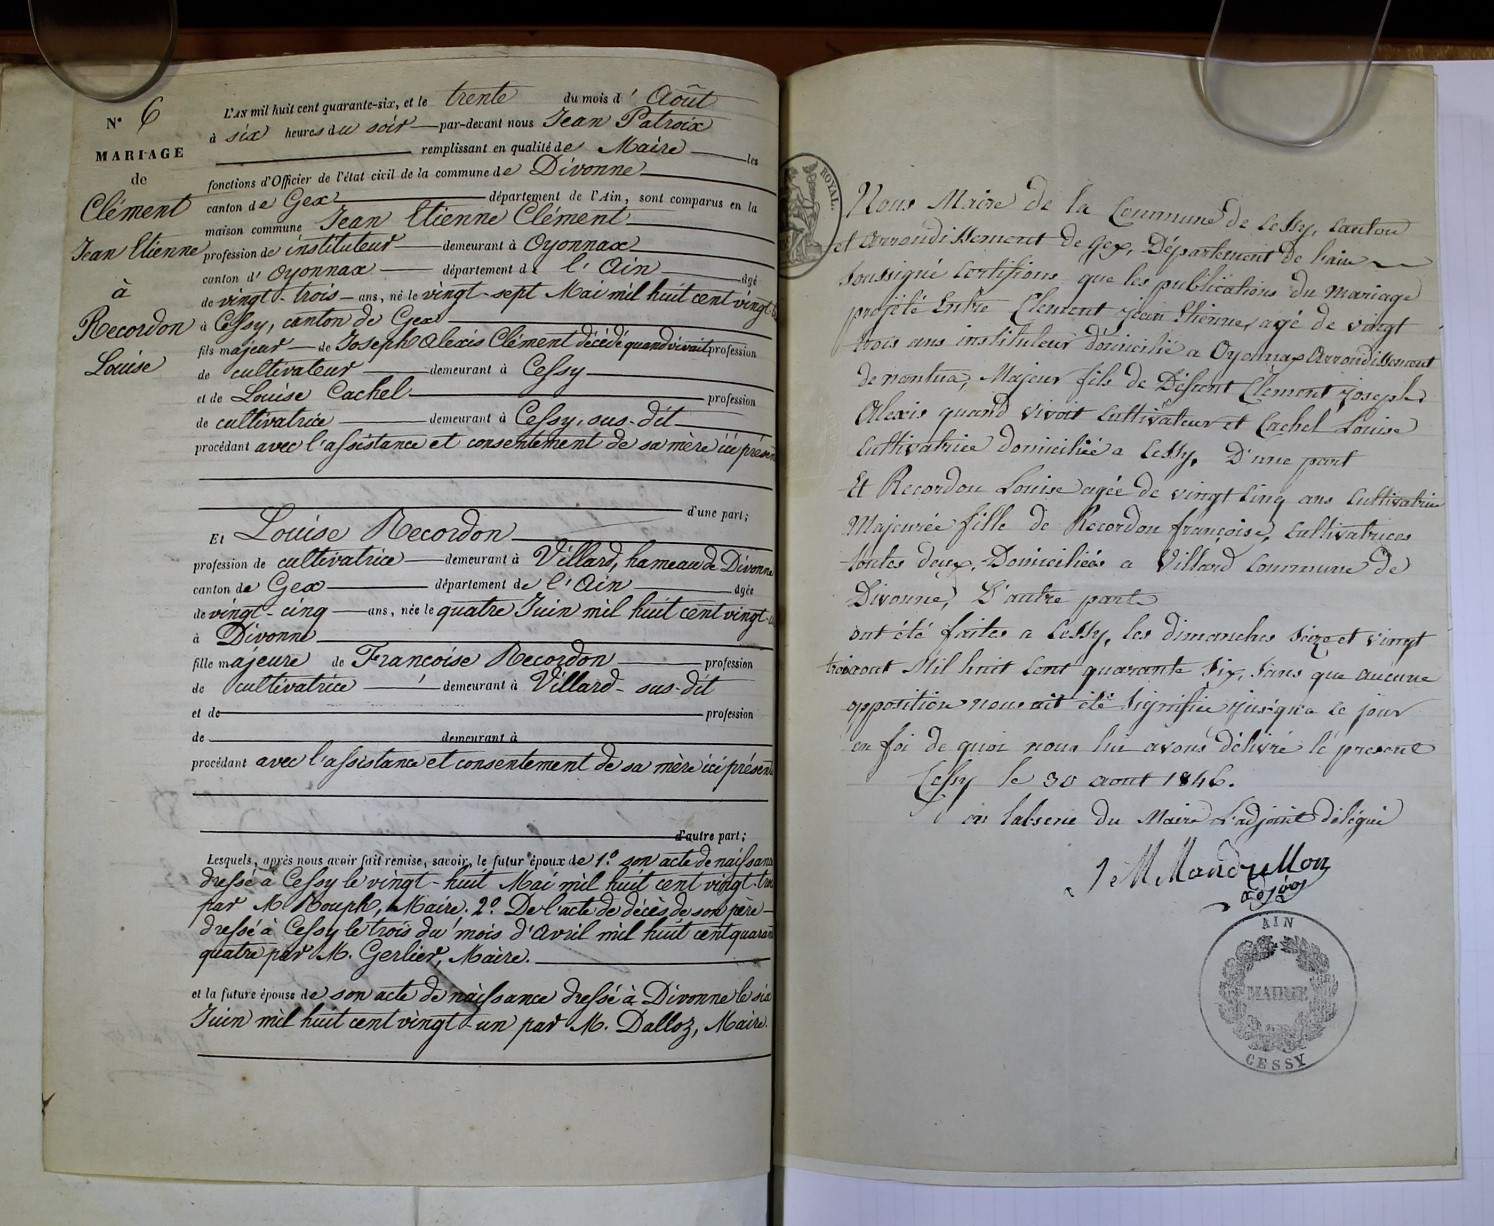 N° 6
MARIAGE
de
Clément
Jean Etienne
à
Recordon
Louise
L'AN mil huit cent quarante-six, et le trente du mois d' Août
à six heures du soir par-devant nous Jean Patroix
remplissant en qualité de Maire les
fonctions d'Officier de l'état civil de la commune de Divonne
canton de Gex département de l'Ain, sont comparus en la
maison commune Jean Etienne Clément
profession de instituteur demeurant à Oyonnax
canton d' Oyonnax département de l'Ain âgé
de vingt-trois ans, né le vingt-sept Mai mil huit cent vingt
à Cessy, canton de Gex
fils majeur de Joseph Alexis Clément décédé quand vivait profession
de cultivateur demeurant à Cessy
et de Louise Cachel profession
de cultivatrice demeurant à Cessy, sus-dit
procédant avec l'assistance et consentement de sa mère ici présen
d'une part;
Et Louise Recordon
profession de cultivatrice demeurant à Villard, hameau de Divonne
canton de Gex département de l'Ain âgée
de vingt-cinq ans, née le quatre Juin mil huit cent vingt
à Divonne
fille majeure de Françoise Recordon profession
de cultivatrice demeurant à Villard-sus-dit
et de profession
de demeurant à
procédant avec l'assistance et consentement de sa mère ici présen
d'autre part;
Lesquels, après nous avoir fait remise, savoir, le futur époux de 1.° son acte de naissan
dressé à Cessy le vingt-huit Mai mil huit cent vingt-tro
par M. Rouph, Maire. 2.° De l'acte de décès de son père
dressé à Cessy le trois du mois d'Avril mil huit cent quaran
quatre par M. Gerlier, Maire.
et la future épouse de son acte de naissance dressé à Divonne le six
Juin mil huit cent vingt-un par M. Dalloz, Maire.
ROYAL.
Nous Maire de la Commune de Cessy, Canton
et arrondissement de Gex, Département de l'ain
soussigné certifions que les publications du mariage
projété Entre Clement jean Etienne, agé de vingt
trois ans instituteur domicilié a Oyonnax arrondissement
de nantua, Majeur fils de Défunt Clement joseph
Alexis quand vivoit cultivateur et Cachel Louise
Cultivatrice domiciliée a Cessy, D'une part
Et Recordon Louise agée de vingt Cinq ans Cultivatrice
Majeurée fille de Recordon françoise, cultivatrices
toutes deux, Domiciliées a Villard Commune de
Divonne, D'autre part
ont été faites a Cessy, les dimanches seize et vingt
trois aout Mil huit Cent quarante Six, sans que aucune
opposition nous ait été signifiée jusqu'a ce jour
en foi de quoi nous lui avons délivré le present
Cessy le 30 aout 1846.
en labsence du Maire L'adjoint délégué
adjoint
AIN
MAIRIE
CESSY